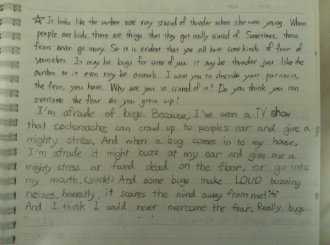 ☆ It looks like the author was very scared of thunder when she was young. When
people are kids, there are things that they get really scared of. Sometimes, those
fears never go away. So it is evident that you all have some kinds of fear of
yourselves. It may be bugs for some of you. It may be thunder just like the
author. Or it even may be animals. I want you to describe your
the fear, you have. Why are you so scared of it? Do you think you can
overcome the fear as you grow up?
I'm afraide of bugs. Because, I've seen a TV show
that cockroaches can crawl up to people's ear and give a
mighty stress. And when a bug comes in to my house,
I'm afraide it might buzz at my ear and give me a
mighty stress or found dead on the floor, or go into
my mouth. And some bugs make LOUD buzzing
noises, honestly, it scares the mind away from me!
And I think I could never overcome the fear. Really, bugs